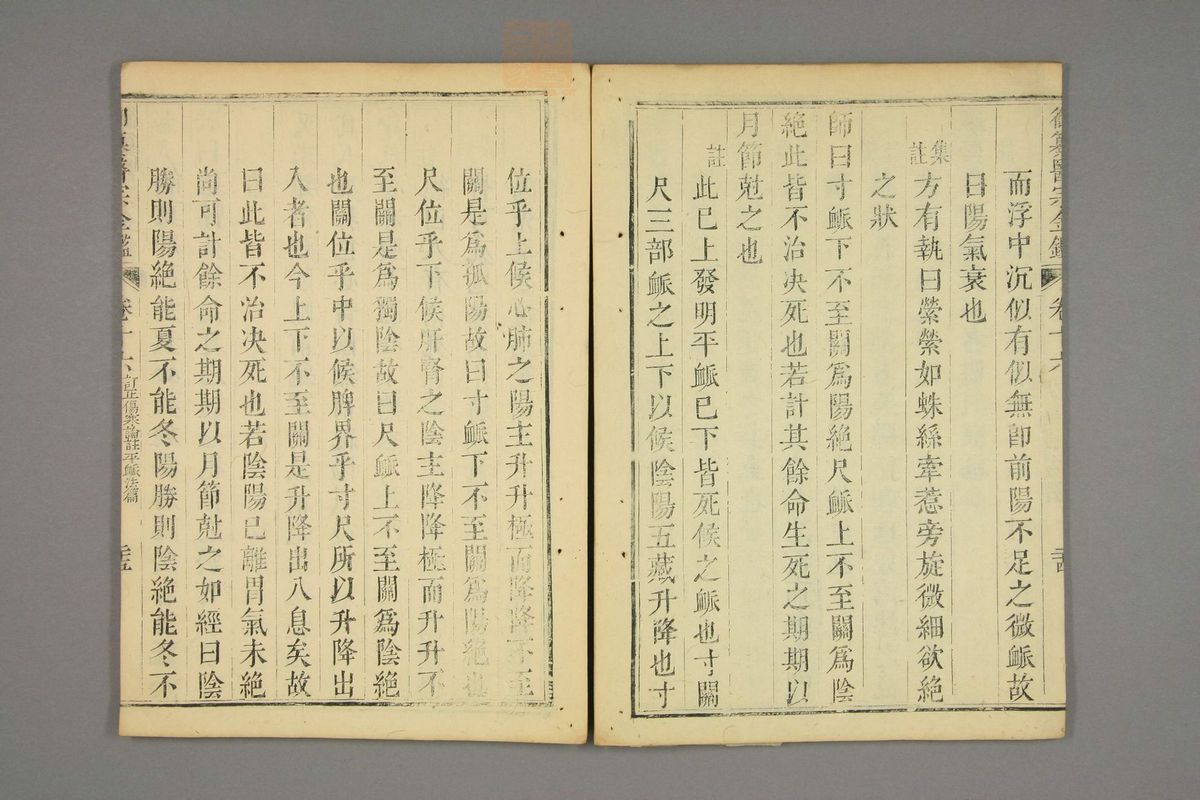 御纂醫宗金鑑 卷十六 二十四
而浮中沉似有似無卽前陽不足之微脈故
曰陽氣衰也
集註
方有執曰縈縈如蛛絲牽惹旁旋微細欲絶
之狀
師曰寸脈下不至關爲陽絶尺脈上不至關爲陰
絶此皆不治决死也若計其餘命生死之期期以
月節尅之也
註
此已上發明平脈已下皆死候之脈也寸關
尺三部脈之上下以候陰陽五藏升降也寸
位乎上候心肺之陽主升升極而降降不至
關是爲孤陽故曰寸脈下不至關爲陽絶也
尺位乎下候肝腎之陰主降降極而升升不
至關是爲獨陰故曰尺脈上不至關爲陰絶
也關位乎中以候脾界乎寸尺所以升降出
入者也今上下不至關是升降出入息矣故
曰此皆不治决死也若陰陽已離胃氣未絶
尚可計餘命之期期以月節尅之如經曰陰
勝則陽絶能夏不能冬陽勝則陰絶能冬不
御纂醫宗金鑑 卷十六 訂正傷寒論註平脈法篇 二十五